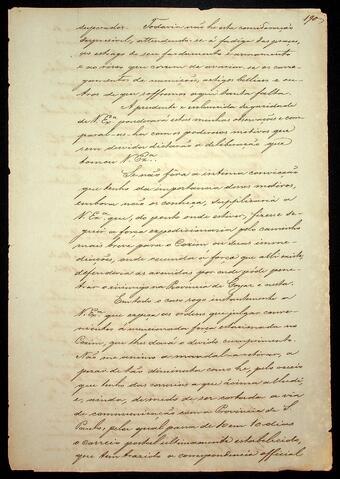 190
desprezador. Todavia não ha esta consideração
desprezivel, attendendo-se á fadiga das praças,
ao estrago de seu fardamento e armamento
e ao risco que correm de avariar-se os carre-
gamentos de munições, artigos bellicos e ou-
tros de que soffremos aqui tanta falta.
A prudente e esclarecida seguridade
de V. Exª ponderará estas minhas observações e com-
paral-as-ha com os poderosos motivos que
sem duvida dictarão a deliberação que
tomar V. Exª.
Se não fôra a intima convicção
que tenho da importancia desses motivos,
embora não os conheça, supplicaria a
V. Exª que, do ponto onde estiver, fizesse se-
guir a força expedicionaria pelo caminho
mais breve para o Coxim ou suas immе-
diações, onde reunida a força que alli existe,
defenderia as avenidas por onde póde pene-
trar o inimigo na Provincia de Goyaz e nesta.
Em todo o caso rogo instantemente a
V. Exª que expeça as ordens que julgar conve-
nientes á mencionada força estacionada no
Coxim, que lhe dará o devido cumprimento.
Não me animo a mandal-a retirar, a
pezar de tão diminuta como he, pelo receio
que tenho das correrias a que acima alludi,
e, ainda, de medo de ser cortada a via
de communicação com a Provincia de S.
Paulo, pela qual passa de 10 em 10 dias
o correio postal ultimamente estabelecido,
que tem trazido a correspondencia official